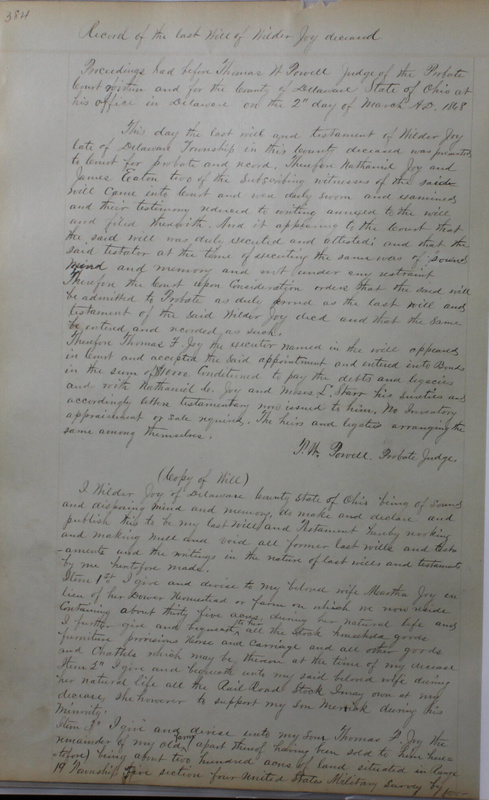 384
Record of the last Will of Wilder Joy deceased
Proceedings had before Thomas W Powell Judge of the Probate
Court within and for the County of Delaware State of Ohio at
his office in Delaware on the 2" day of March A.D. 1868
This day the last will and testament of Wilder Joy
late of Delaware Township in this County deceased was presented
to Court for probate and record. Therefore Nathaniel Joy and
James Eaton two of the subscribing witnesses of the said
will came into Court and was duly sworn and examined
and their testimony reduced to writing annexed to the will
and filed therewith. And it appearing to the Court that
the said will was duly executed and attested; and that the
said testator at the time of executing the same was of sound
mind and memory and not under any restraint
Therefore the Court upon Consideration orders that the said will
be admitted to Probate as duly proved as the last will and
testament of the said Wilder Joy decd and that the same
be entered and recorded as such.
Therefore Thomas F. Joy the executor named in the will appeared
in Court and accepted the said appointment and entered into Bonds
in the sum of Conditioned to pay the debts and legacies
and with Nathaniel Joy and Moses Starr his sureties and
accordingly letters testamentary now issued to him. No Inventory
appraisement or sale required. The heirs and legatees arranging the
same among themselves.
T. W. Powell Probate Judge.
(Copy of Will)
I Wilder Joy of Delaware County State of Ohio being of sound
and disposing mind and memory, do make and declare and
publish this to be my last Will and Testament hereby revoking
and making null and void all former last wills and testa
-ments and the writings in the nature of last wills and testaments
by me heretofore made.
Item 1st I give and devise to my beloved wife Martha Joy in
lieu of her Dower Homestead or farm on which we now reside
Containing about thirty five acres during her natural life and
I further give and bequeath to her all the stock household goods
furniture provisions Horse and Carriage and all other goods
and Chattels which may be thereon at the time of my decease
Item 2" I give and bequeath unto my said beloved wife during
her natural life all the Rail Road Stock I may own at my
decease, she however to support my son Merrick during his
minority.
Item 3" I give and devise unto my son Thomas F. Joy the
remainder of my old farm (apart thereof having been sold to him here
-tofore) being about two hundred acres of land situated in range
19 Township five section four United States Military Survey by